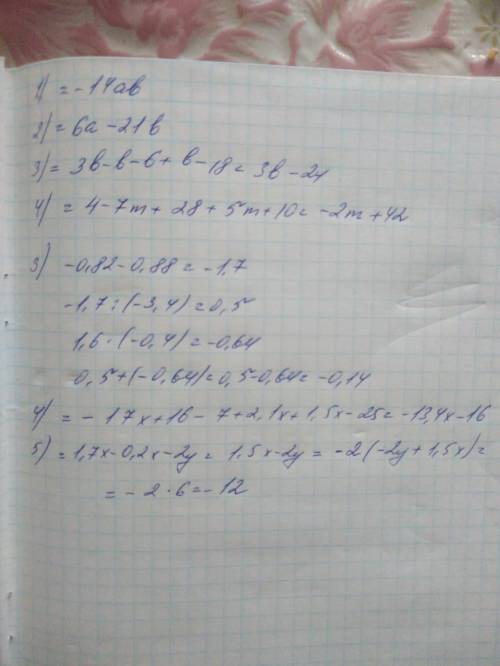 1) = -14ab
2) = 6a - 21b
3) = 3b - b - 6 + b - 18 = 3b - 24
4) = 4 - 7m + 28 + 5m + 10 = -2m + 42
3) -0,82 - 0,88 = -1,7
-1,7 : (-3,4) = 0,5
1,6 · (-0,4) = -0,64
0,5 + (-0,64) = 0,5 - 0,64 = -0,14
4) = - 17x + 16 - 7 + 2,1x + 1,5x - 25 = -13,4x - 16
5) = 1,7x - 0,2x - 2y = 1,5x - 2y = -2(-2y + 1,5x) =
= - 2 · 6 = -12